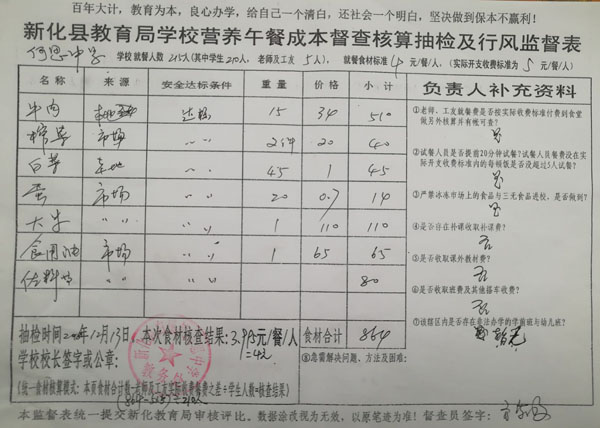 百年大计，教育为本，良心办学，给自己一个清白，还社会一个明白，坚决做到保本不赢利！
新化县教育局学校营养午餐成本督查核算抽检及行风监督表
学校就餐人数215人(其中学生210人，老师及工友5人)，就餐食材标准4元/餐/人，(实际开支收费标准为5元/餐/人)
名称 来源 安全达标条件 重量 价格 小计 负责人补充资料
牛肉 达标 15 34 510
市场 〃 〃 2件 20 40
〃 〃 45 1 45
蛋 市场 〃 〃 20 0.7 14
〃 〃 〃 〃 1 110 110
食用油 市场 〃 〃 1 65 65
佐料 〃 〃 80
①老师、工友就餐费是否按实际收费标准付费到食堂
做另外核算并有帐可查！
是
②试餐人员是否提前20分钟试餐？试餐人员餐费没在实
际开支收费标准内的每顿饭是否没超过5人试餐？
是
③严禁冰冻市场上的食品与三无食品进校，是否做到？
是
④是否存在补课收取补课费？
否
⑤是否收取课外教材费？
否
⑥是否收取班费及其他搭车收费？
否
⑦该辖区内是否存在非法办学的学前班与幼儿班？
抽检时间 年12月13日，本次食材核查结果：3.9 元/餐/人 食材合计 864
≈4元
学校校长签字或公章：
⑧您需解决问题、方法及困难：
(统一食材核算模式：本页食材合计数-老师及工友实际收费餐费之差÷学生人数=核查结果)
本监督表统一提交新化教育局审核评比。数据涂改视为无效，以原笔迹为准！督查员签字：